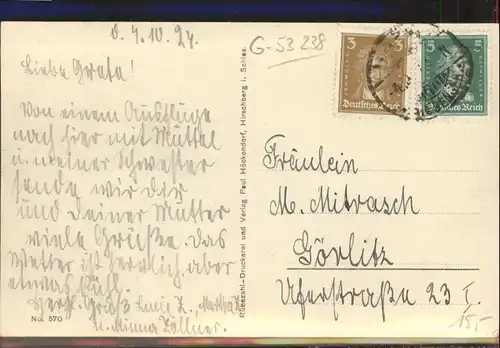 d. 4. 10. 27.
Liebe Greta!
Von einem Ausfluge
nach hier mit Muttel
u. meiner Schwester
sende wir dir
und deiner Mutter
viele Grüße. Das
Wetter ist herrlich, aber
etwas kühl.
Herzl. Gruß Lucie Z., Martha Z.
u. Minna Zöllner.
No. 570
Rübezahl-Druckerei und Verlag Paul Höckendorf, Hirschberg i. Schles.
G-53 238
3 3
Deutsches Reich
5 5
Deutsches Reich
Fräulein
M. Mitrasch
Görlitz
Uferstraße 23 I.
15,-